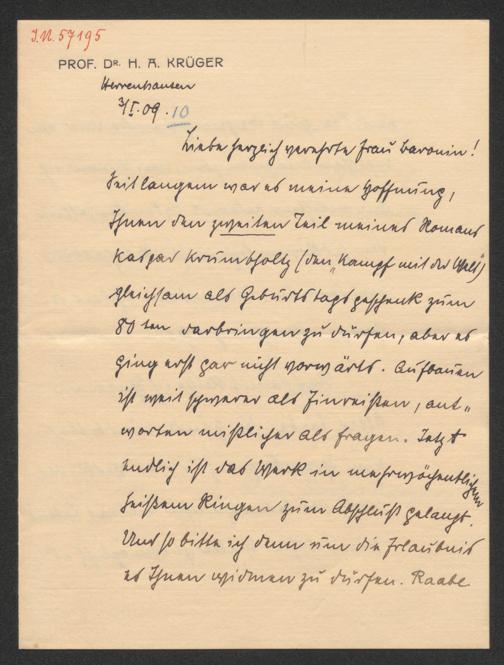 I.N. 57195
PROF. DR. H. A. KRÜGER
Herrenhausen
3/I. 09. 10
Liebe herzlich verehrte Frau Baronin!
Seit langem war es meine Hoffnung,
Ihnen den zweiten Teil meines Romans
Kaspar Krumbholtz (den „Kampf mit der Welt“)
gleichsam als Geburtstagsgeschenk zum
80ten darbringen zu dürfen, aber es
ging erst gar nicht vorwärts. Aufbauen
ist weit schwerer als Einreißen, ant„
worten mißlicher als fragen. Jetzt
endlich ist das Werk in mehrwöchentlichem
heißem Ringen zum Abschluß gelangt.
Und so bitte ich denn um die Erlaubnis
es Ihnen widmen zu dürfen. Raabe